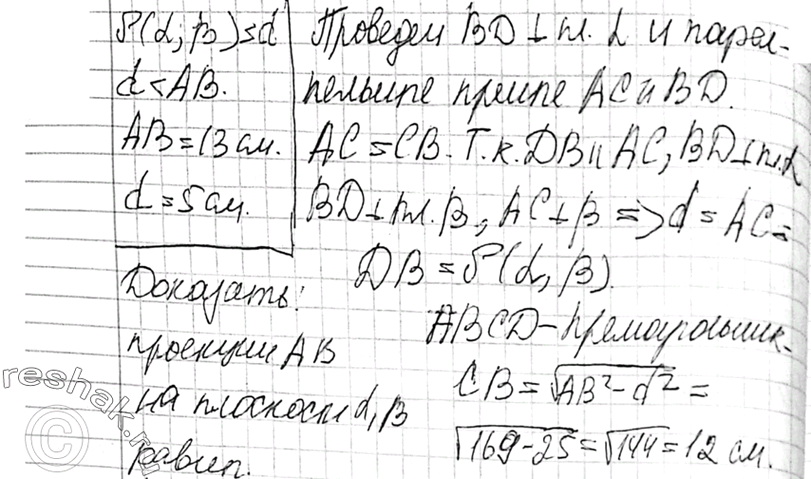 ρ(α, β) = d
d < AB.
AB = 13 см.
d = 5 см.
Доказать:
проекции АВ
на плоскости α, β
равны.
Проведем BD ⊥ пл. α и парал-
лельные прямые AC и BD.
AC = CB. Т.к. DB ∥ AC, BD ⊥ пл. α
BD ⊥ пл. β, AC ⊥ β => d = AC =
DB = ρ(α, β).
ABCD - прямоугольник.
CB = √AB² - d² =
√169 - 25 = √144 = 12 см.
reshak.ru
©